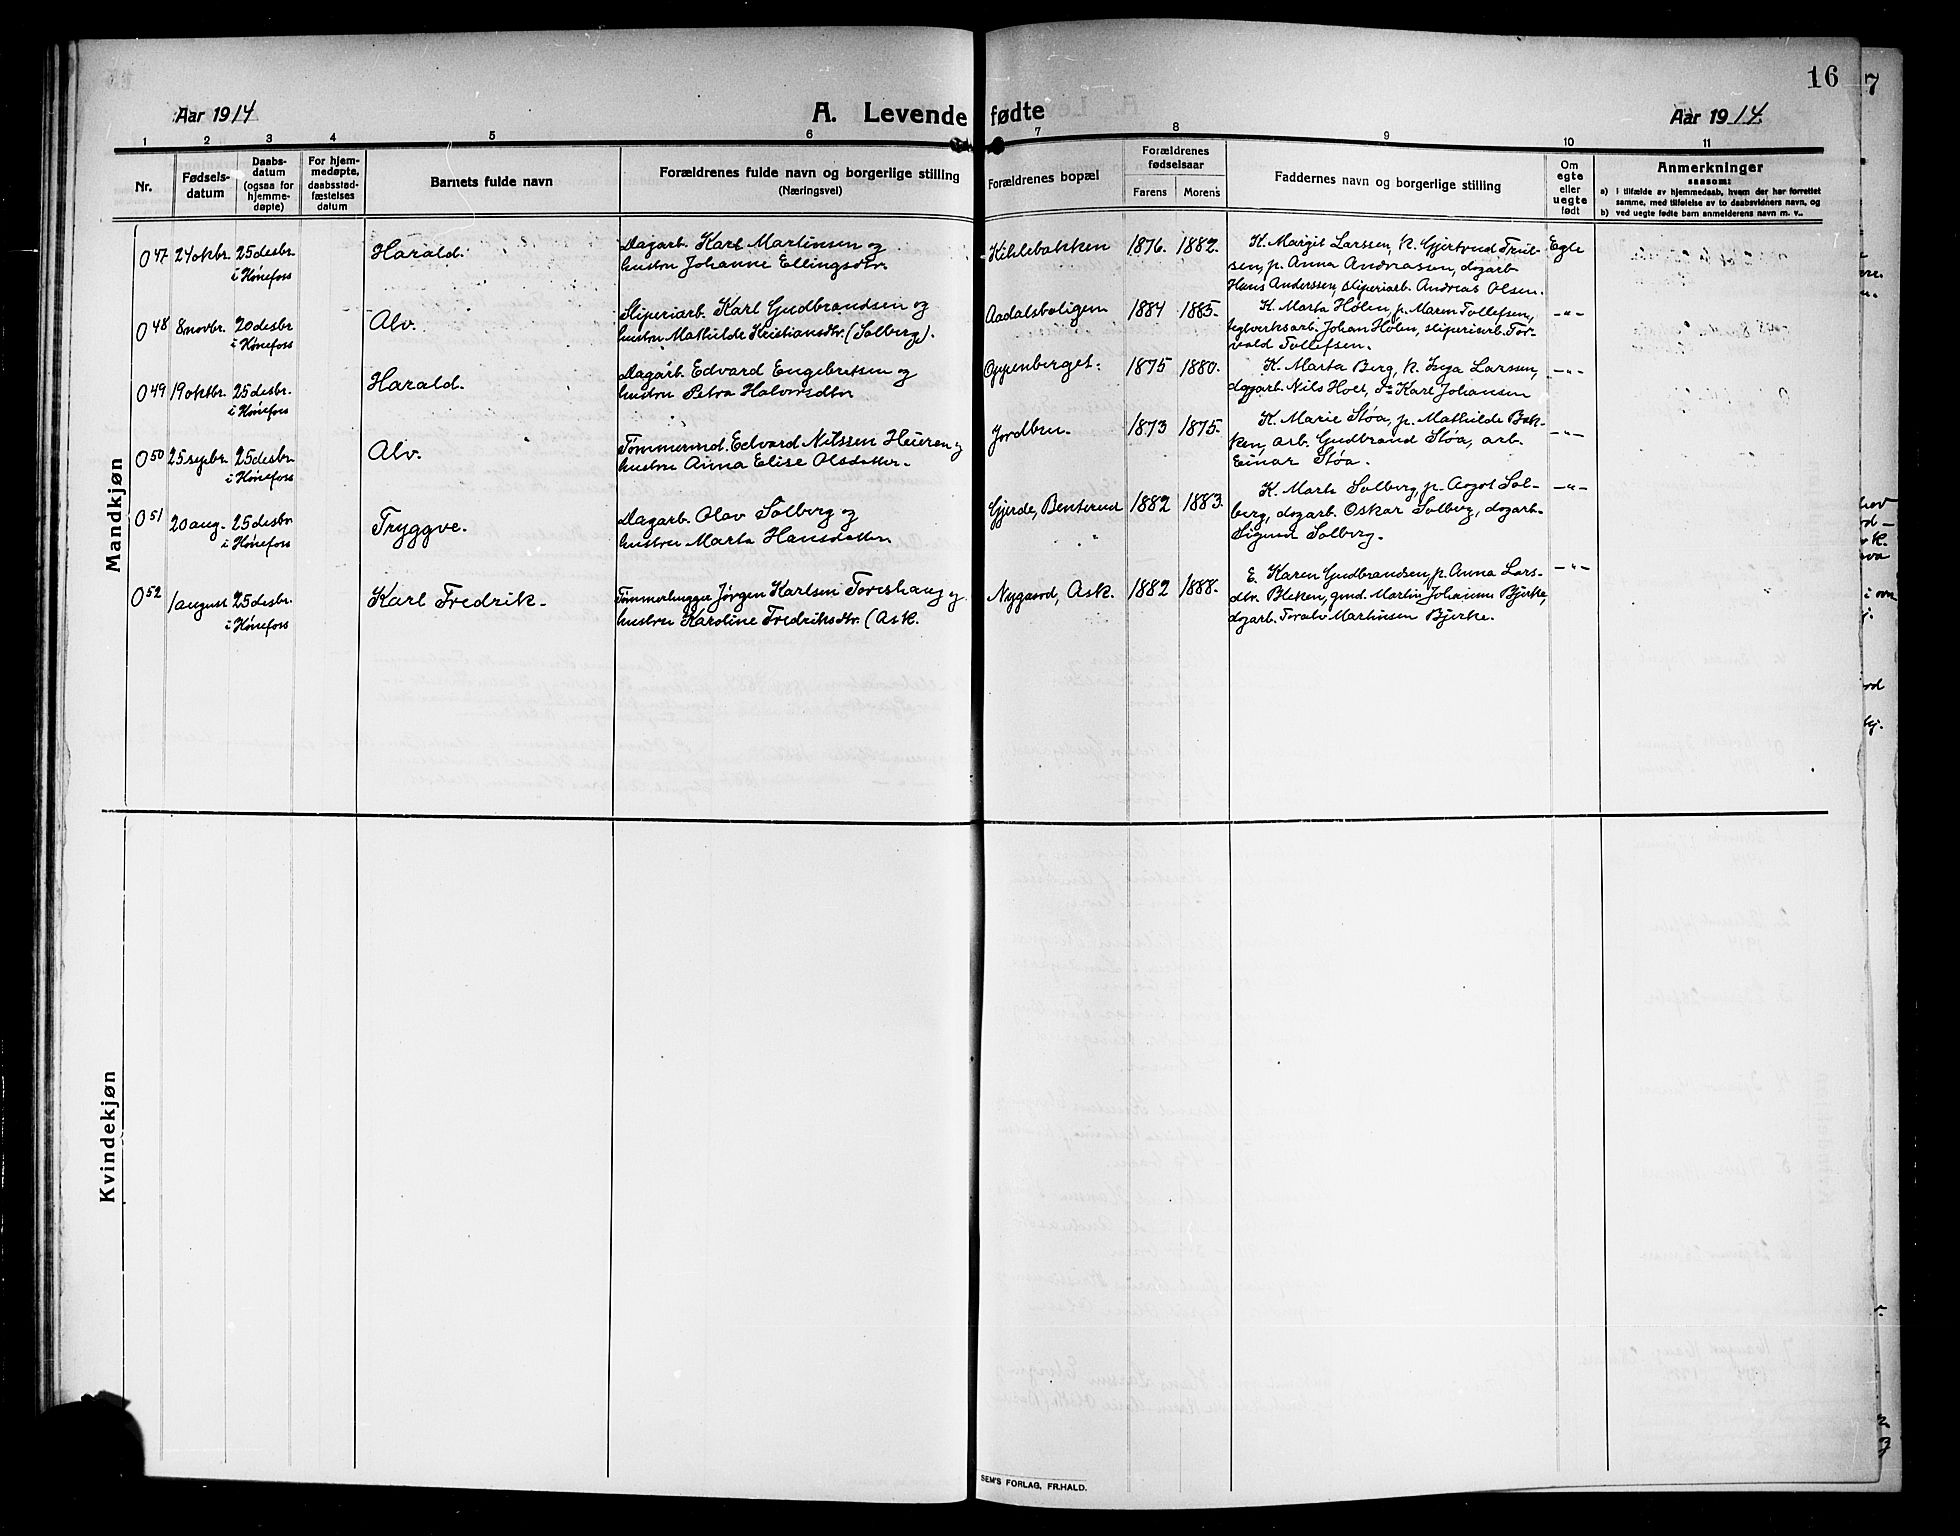 16
7
Aar 1914
A. Levende fødte
Aar 1914.
1 2 3 4 5 6 7 8 9 10 11
Nr.
Fødsels-
datum
Daabs-
datum
(ogsaa for
hjemme-
døpte)
For hjem-
medøpte,
daabsstad-
fæstelses
datum
Barnets fulde navn
Forældrenes fulde navn og borgerlige stilling
(Næringsvei)
Forældrenes bopæl
Forældrenes
fødselsaar
Farens Morens
Faddernes navn og borgerlige stilling
Om
egte
eller
uegte
født
Anmerkninger
sassom:
a) i tilfælde av hjemmedaab, hvem der har forrettet
samme, med tilføielse av to daabsvidners navn, og
b) ved uegte fødte barn anmelderens navn m. v..
Mandkjøn
047 24 oktbr. 25 desbr.
i Hønefoss
Harald.
Dagarb. Karl Martinsen og
hustru Johanne Ellingsdtr.
Kihlebakken 1876. 1882.
K. Margit Larssen, k. Gjertrud Trul-
sen, p. Anna Andreassen, dagarb.
Hans Anderssen, sliperiarb. Andreas Olsen.
Egte
048 8 novbr. 20 desbr.
i Hønefoss
Alv.
Sliperiarb. Karl Gudbrandsen og
hustru Mathilde Kristiansdtr. (Solberg).
Aadalsboligen 1884 1885.
K. Marta Holen, p. Maren Tollefsen,
teglverksarb. Johan Holen, sliperiarb. Tor-
vald Tollefsen.
-"-
049 19 oktbr. 25 desbr.
i Hønefoss
Harald.
Dagarb. Edvard Engebretsen og
hustru Petra Halvorsdtr
Oppenberget. 1875 1880.
K. Marta Berg, k. Inga Larssen,
dagarb. Nils Hoel, do Karl Johansen
-"-
050 25 sepbr. 25 desbr.
i Hønefoss
Alv.
Tømmermd. Edvard Nilssen Heieren og
hustru Anna Elise Olsdatter.
Jordbru. 1873 1875.
K. Marie Støa, p. Mathilde Bak-
ken, arb. Gudbrand Støa, arb.
Einar Støa.
-"-
051 20 aug. 25 desbr
i Hønefoss
Tryggve.
Dagarb. Olav Solberg og
hustru Marta Hansdatter
Gjerde, Benterud 1882 1883.
K. Marte Solberg, p. Aagot Sol-
berg, dagarb. Oskar Solberg, dagarb.
Sigurd Solberg.
-"-
052 1 august 25 desbr.
i Hønefoss
Karl Fredrik.
Tømmerhugger Jørgen Karlsen Toreshaug og
hustru Karoline Fredriksdtr. (Ask.
Nygaard, Ask. 1882 1888.
E. Karen Gudbrandsen, p. Anna Lars-
dtr. Bleken, gmd. Martin Johannes Bjerke,
dagarb. Toralv Martinsen Bjerke.
-"-
Kvindekjøn
SEM'S FORLAG, FR.HALD.